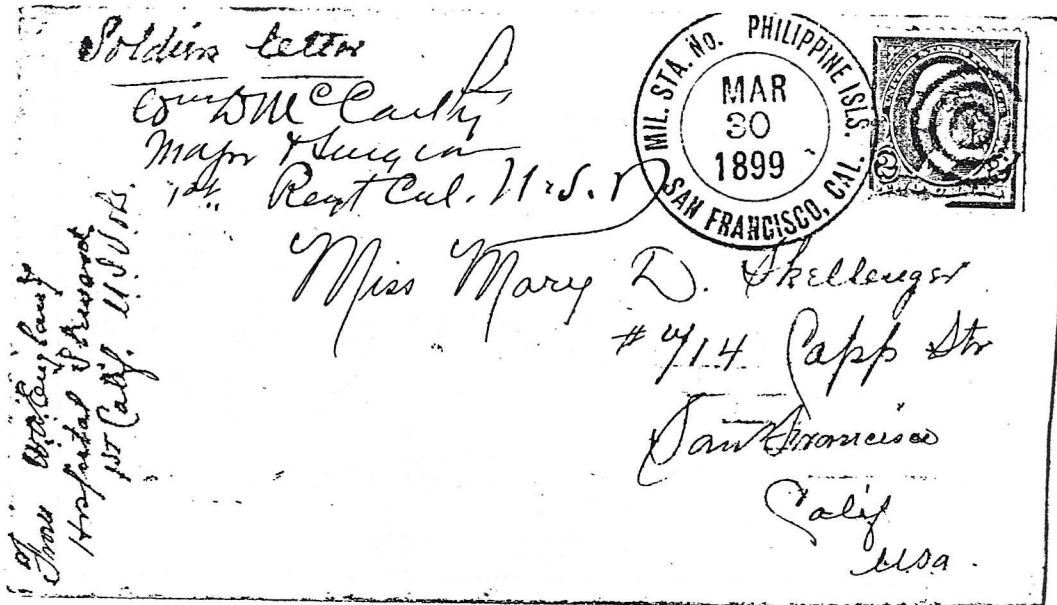 Soldiers letter
D McCarthy
Major & Surgeon
1st Regt Cal. U.S.V
MIL. STA. No. PHILIPPINE ISLS.
MAR
30
1899
SAN FRANCISCO, CAL.
2
Miss Mary D. Skellenger
# 714 Capp Str
San Francisco
Calif
USA.
From England
Hospital Steward
1st Calif. U S Vols.